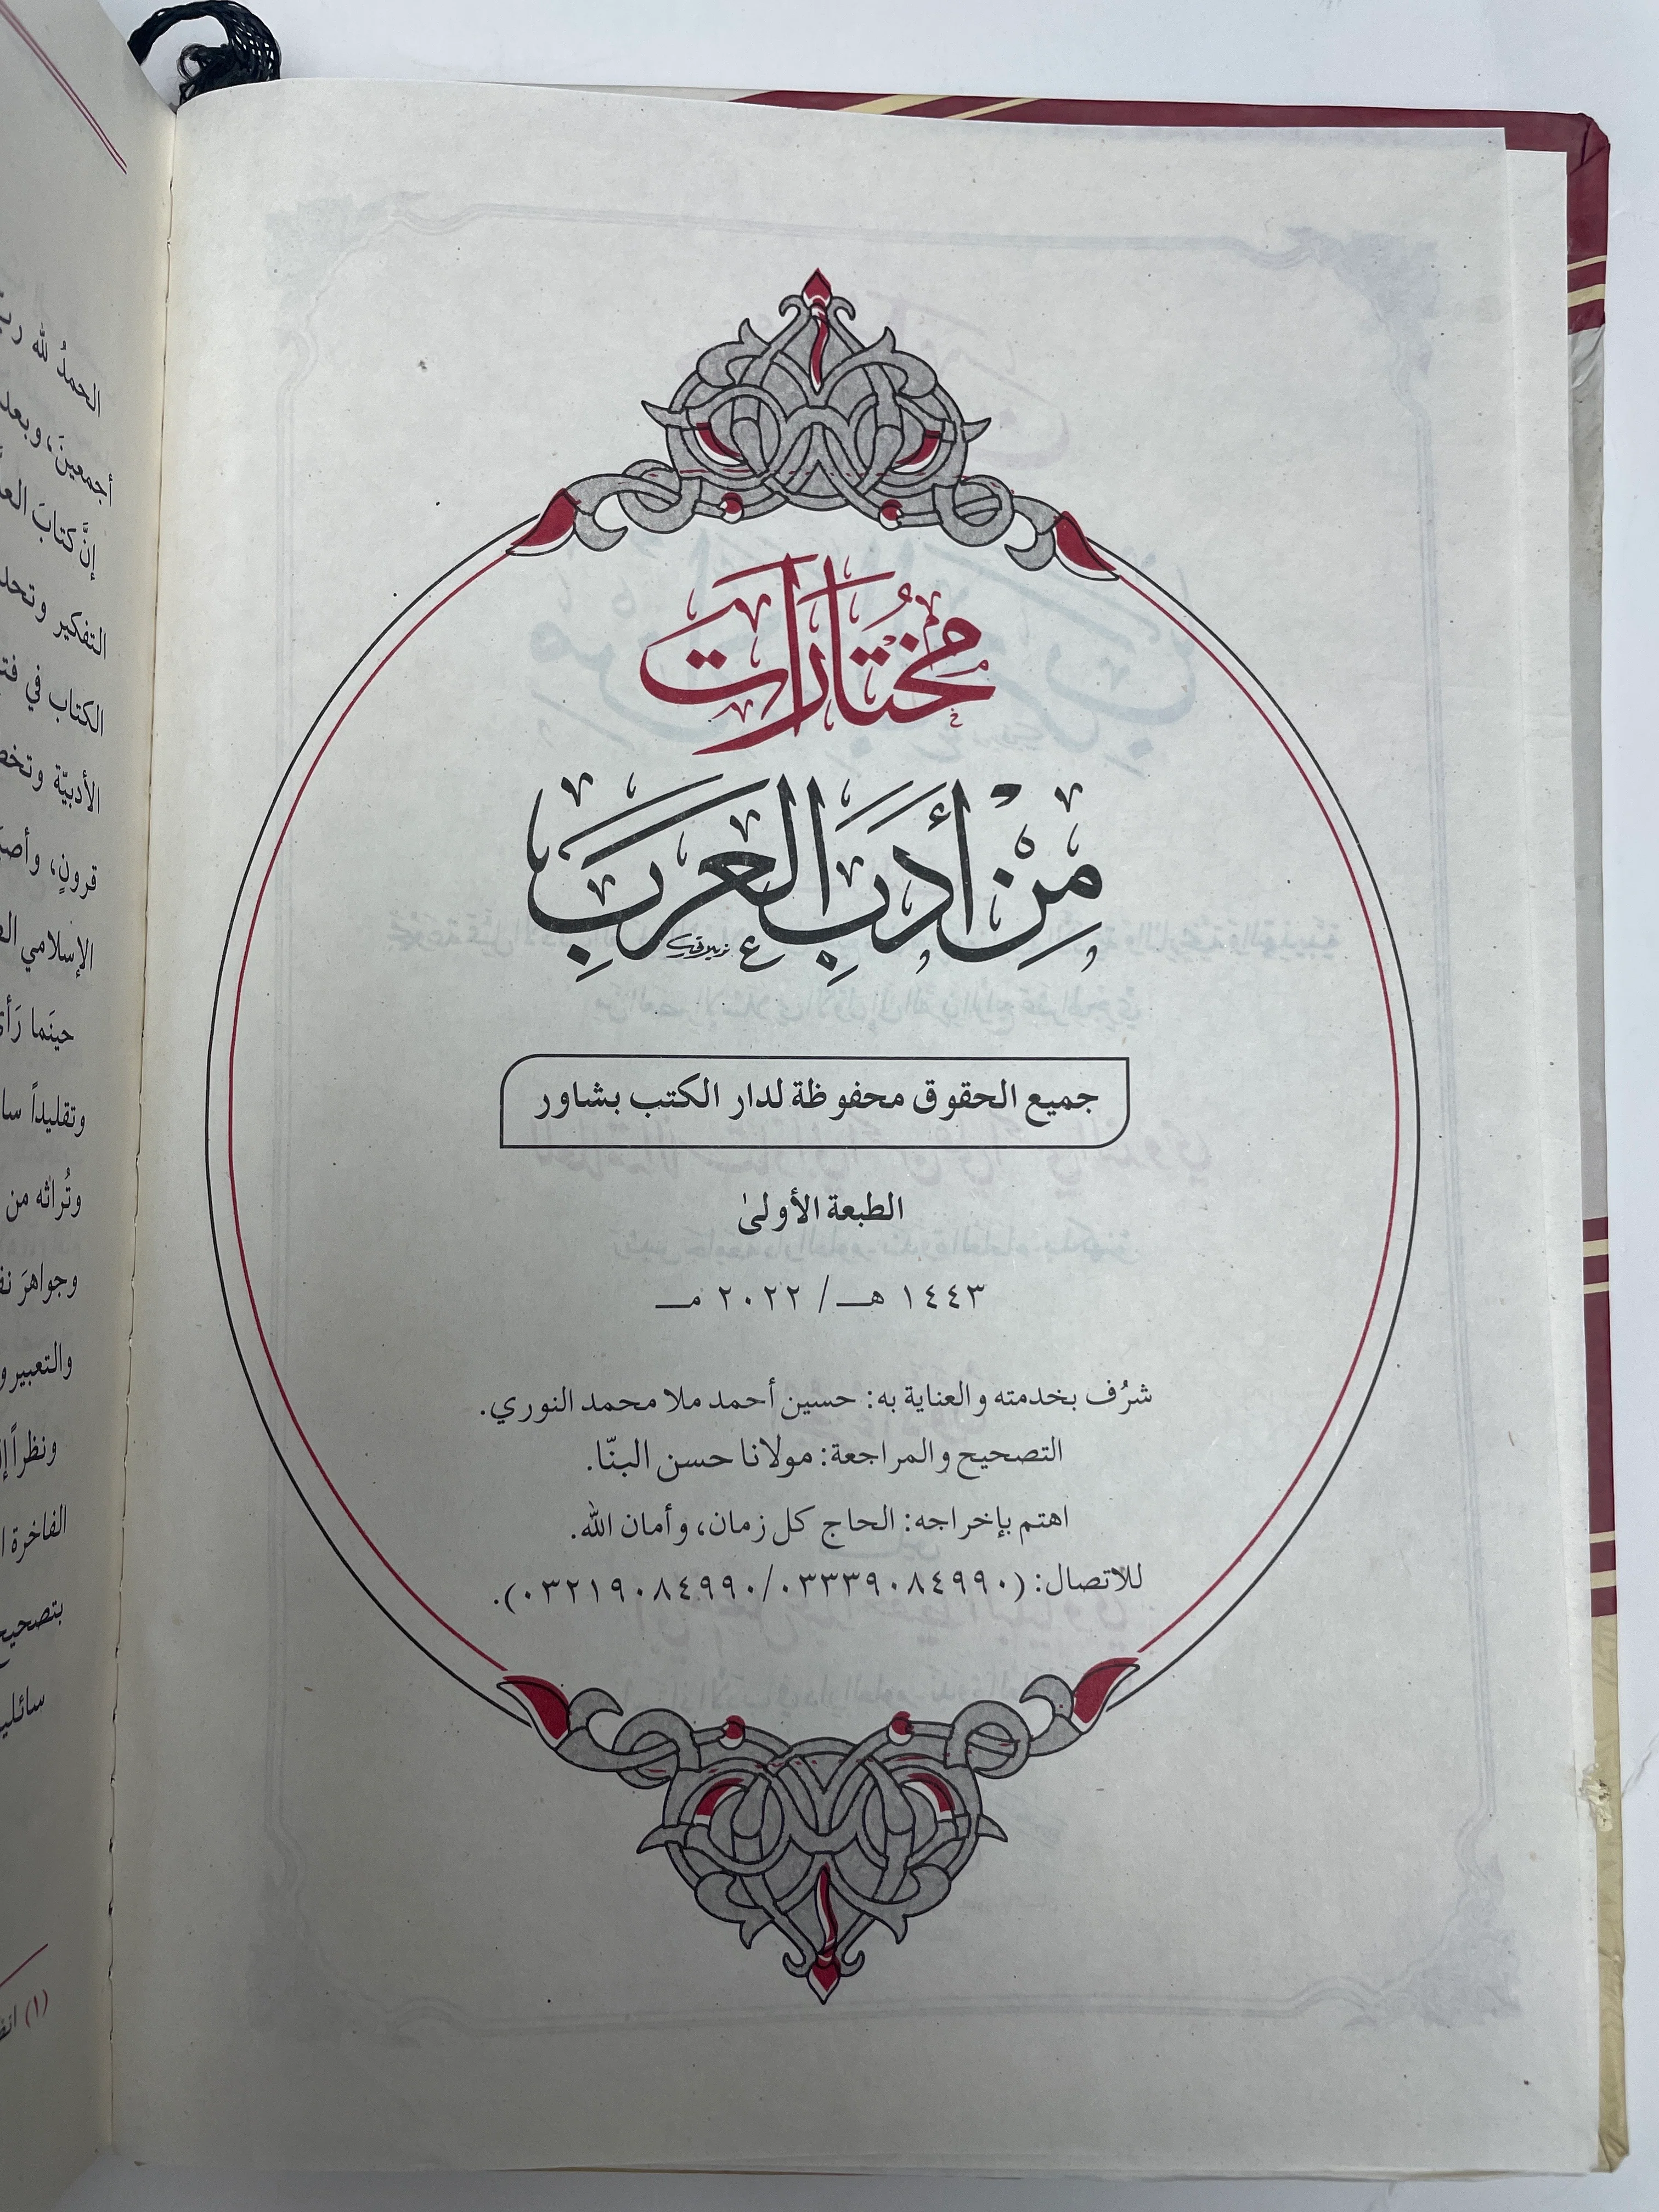 مُختارات
مِنْ أَدَبِ العَرَبِ
جميع الحقوق محفوظة لدار الكتب بشاور
الطبعة الأولىٰ
١٤٤٣ هـ / ٢٠٢٢ مـ
شرُف بخدمته والعناية به: حسين أحمد ملا محمد النوري.
التصحيح والمراجعة: مولانا حسن البنّا.
اهتم بإخراجه: الحاج كل زمان، وأمان الله.
للاتصال: (٠٣٣٣٩٠٨٤٩٩٠/٠٣٢١٩٠٨٤٩٩٠).
الحمدُ لله
أجمعينَ، وبعد
إنَّ كتابَ
التفكير
الكتاب في
الأدبيّة
قرونٍ،
الإسلامي
حينَما
وتقليداً
وتُراثه من
وجواهرَ
والتعبير و
ونظراً
الفاخرة
(١)